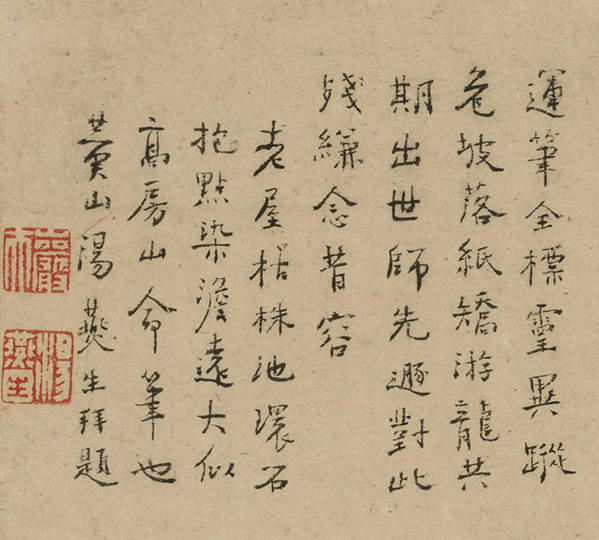 運筆全標靈異蹤
危坡落紙矯游龍共
期出世師先遯對此
殘縑念昔容
老屋枯株池環石
抱點染澹遠大似
高房山命筆也
黃山湯燕生拜題
燕生